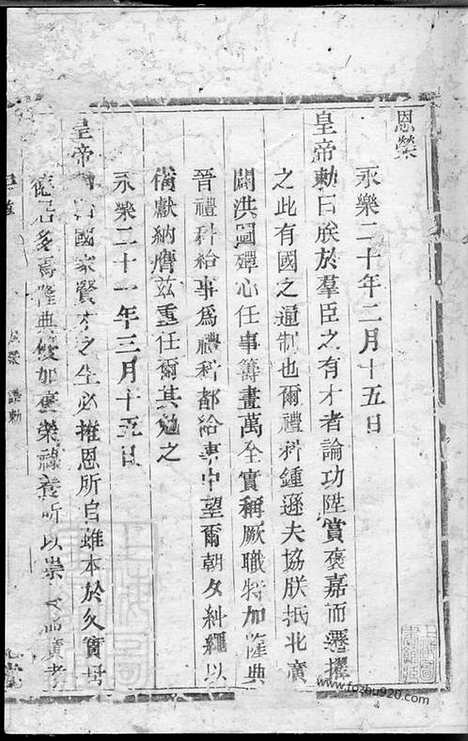 恩榮
永樂二十年二月十五日
皇帝勅曰朕於羣臣之有才者論功陞賞褒嘉而遷擢
之此有國之通制也爾禮科鍾遜夫協朕抵北廣
闢洪圖殫心任事籌畫萬全實稱厥職特加隆典
晉禮科給事為禮科都給事中望爾朝夕糾繩以
備獻納膺茲重任爾其勉之
永樂二十一年三月十五日
皇帝 國家賢才之生必推恩所自雖本於父實母
德居多焉隆典 加褒榮祿養所以崇
www.fozhu920.com